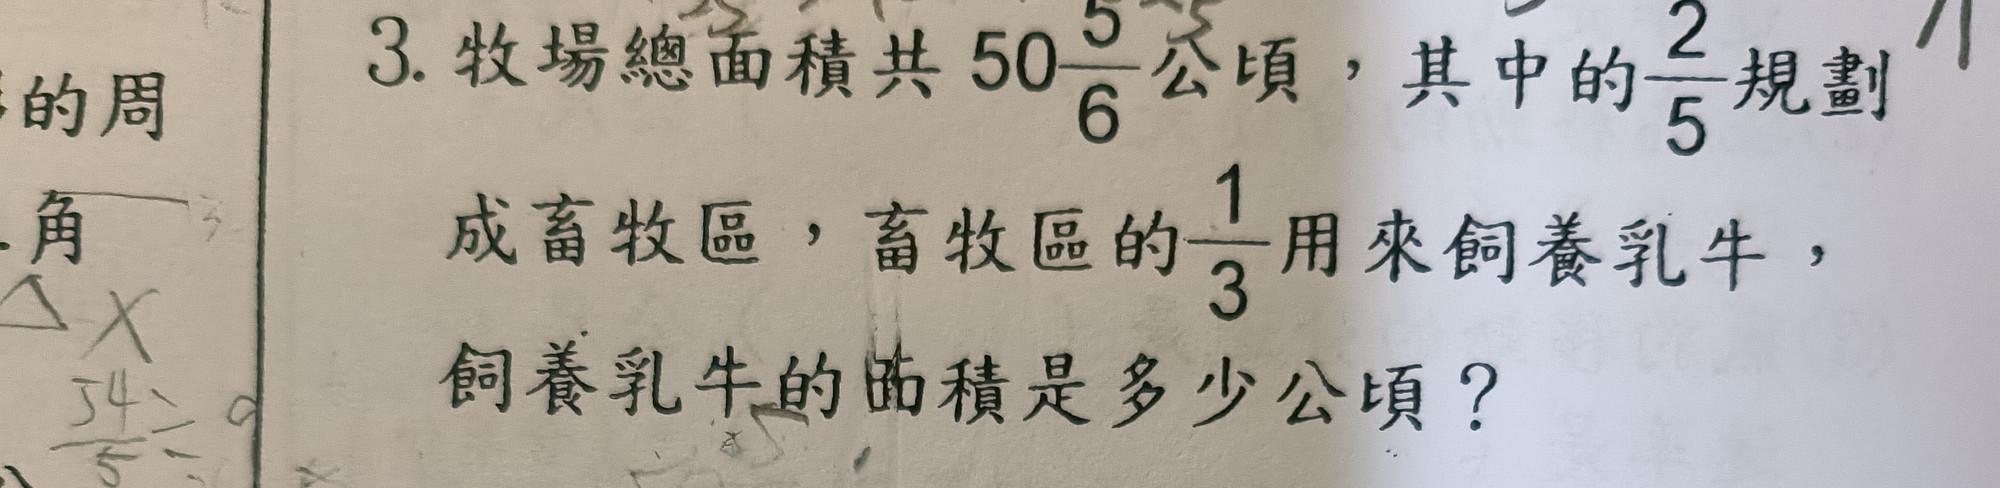 的周
角
3. 牧場總面積共 50 5/6 公頃，其中的 2/5 規劃
成畜牧區，畜牧區的 1/3 用來飼養乳牛，
飼養乳牛的面積是多少公頃？
54/5